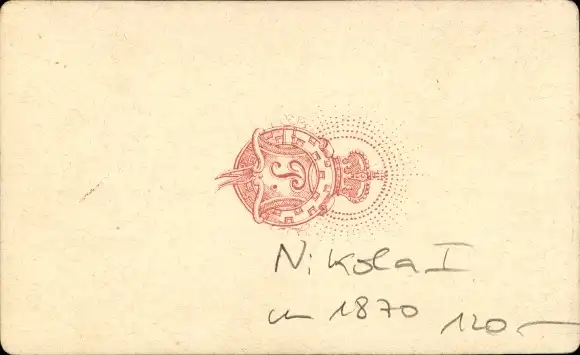 Nikola I
um 1870 120,—